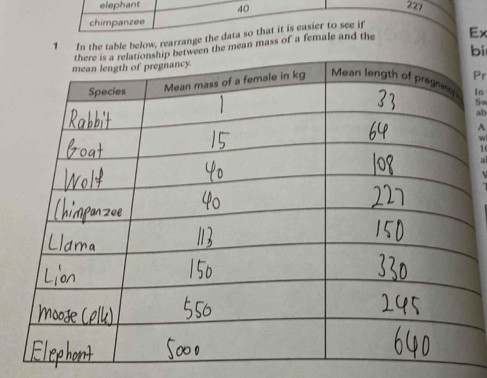 elephant
40 227
chimpanzee
1 In the table below, rearrange the data so that it is easier to see if
there is a relationship between the mean mass of a female and the
mean length of pregnancy.
Species Mean mass of a female in kg Mean length of pregnancy
Rabbit 1 33
Goat 15 64
Wolf 40 108
Chimpanzee 40 227
Llama 113 150
Lion 150 330
moose (elk) 550 245
Elephant 5000 640
Ex
bi
Pr
In
Sw
ab
A